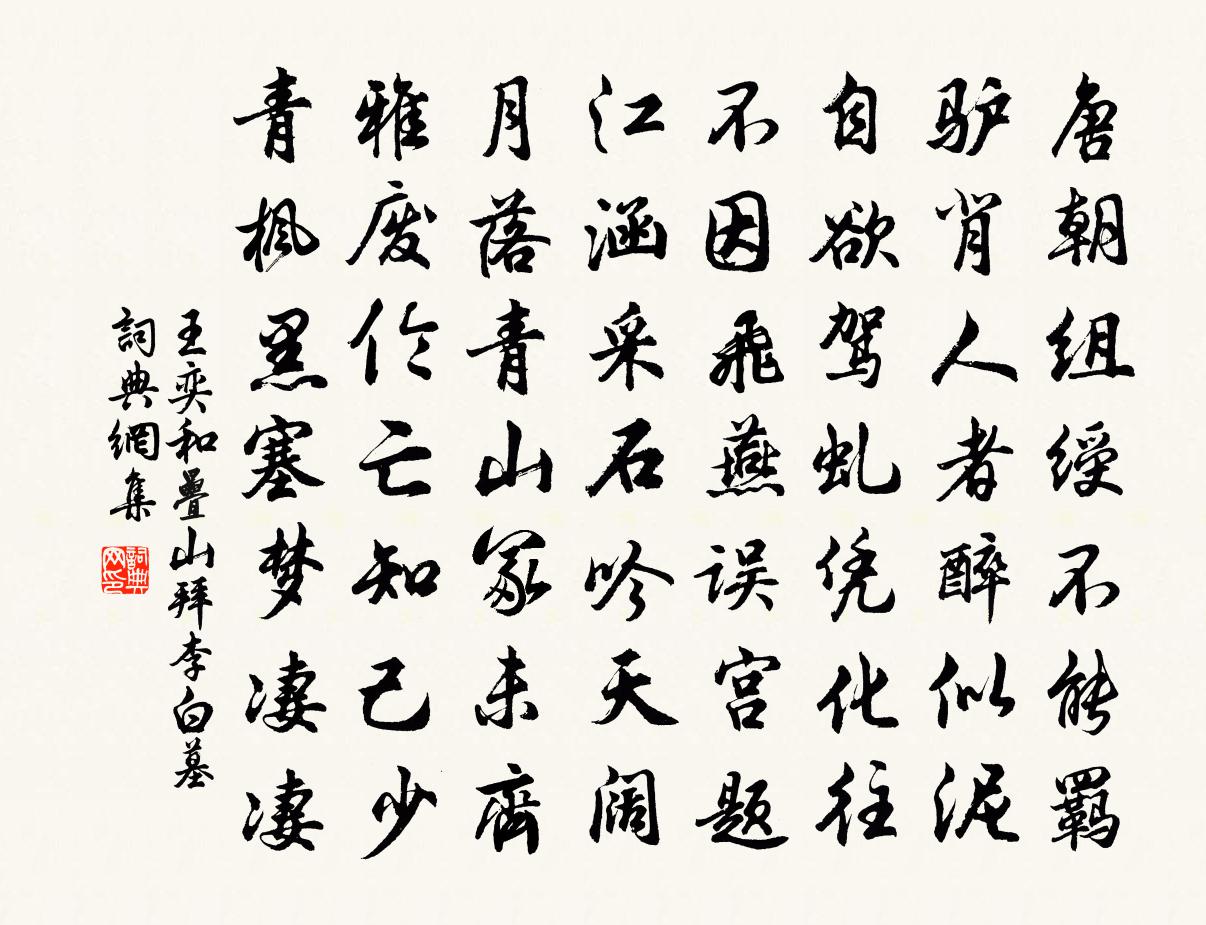 唐朝组绶不能羁
驴肖人者醉似泥
自欲驾虬凭化往
不因飛燕误宫题
江涵采石吟天阔
月落青山冢未齊
雅废伶亡知己少
青枫黑塞梦凄凄
王奕和疊山拜李白墓
詞典網集
詞典网印